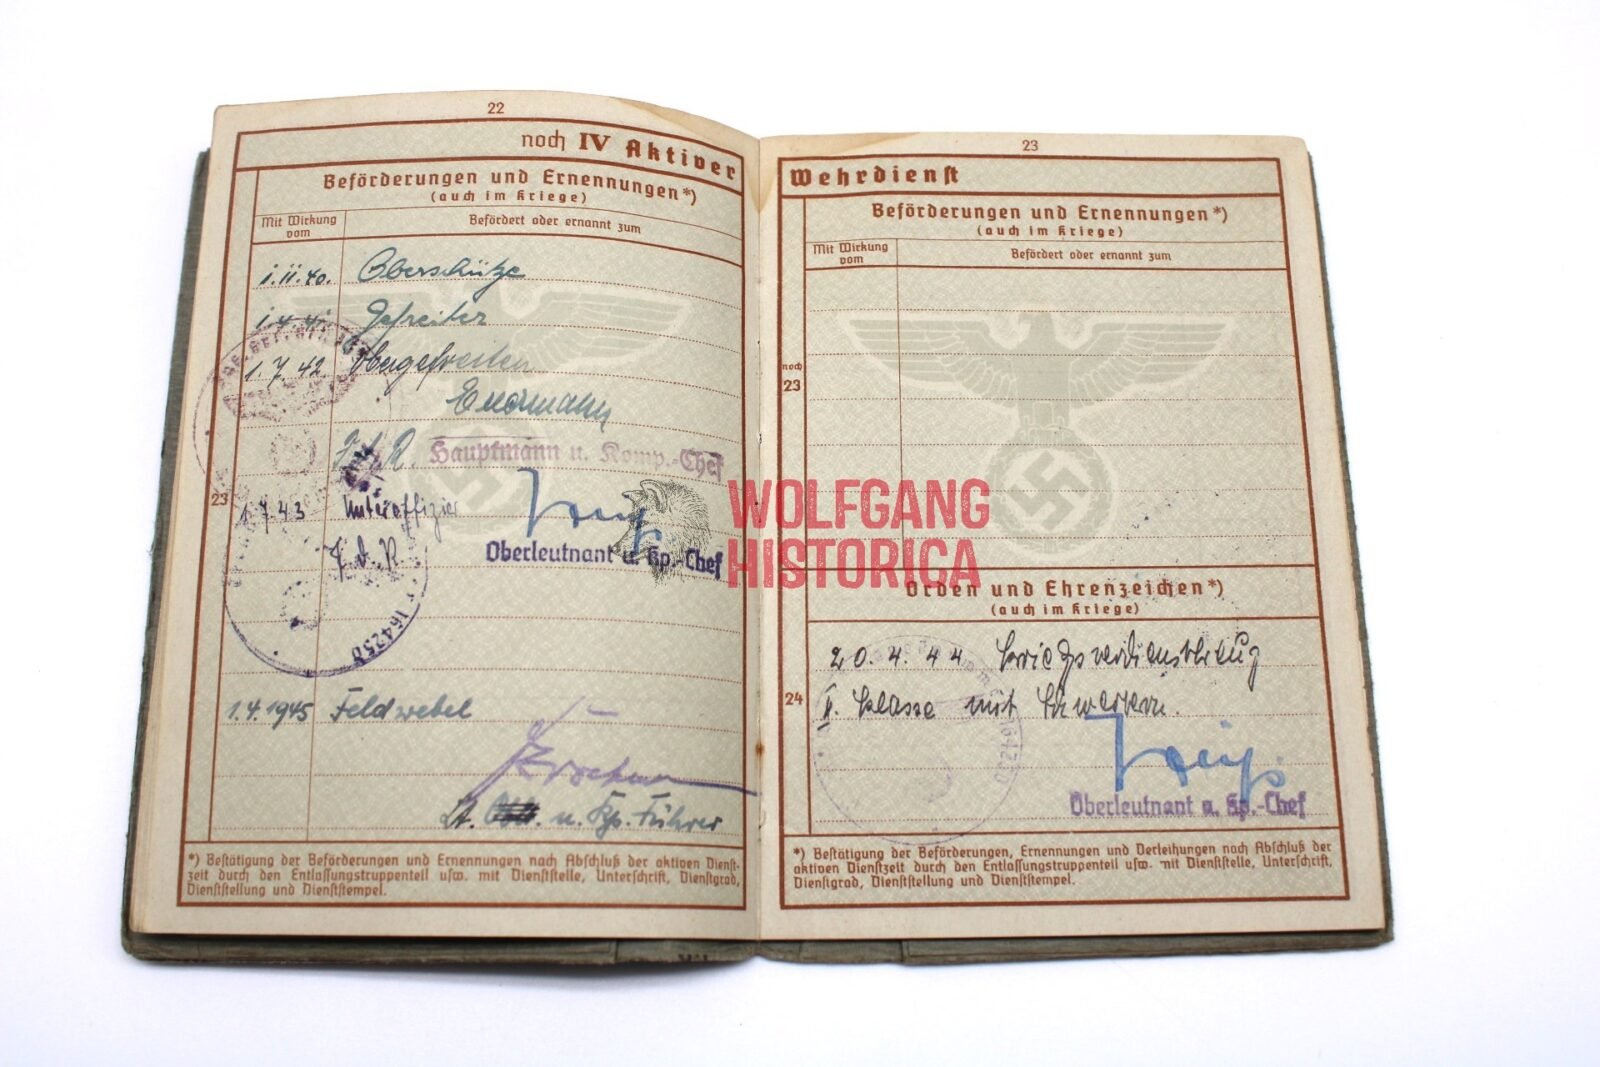 22
noch IV Aktiver
Beförderungen und Ernennungen*)
(auch im Kriege)
Mit Wirkung vom
Befördert oder ernannt zum
1.11.40. Oberschütze
1.4.41. Gefreiter
1.7.42 Obergefreiten
F.d.R. Hauptmann u. Komp.-Chef
23
1.7.43 Unteroffizier
F.d.R.
Oberleutnant u. Kp.-Chef
16425D
1.4.1945 Feldwebel
Lt. u. Kp.-Führer
*) Bestätigung der Beförderungen und Ernennungen nach Abschluß der aktiven Dienst-
zeit durch den Entlassungstruppenteil usw. mit Dienststelle, Unterschrift, Dienstgrad,
Dienststellung und Dienststempel.
23
Wehrdienst
Beförderungen und Ernennungen*)
(auch im Kriege)
Mit Wirkung vom
Befördert oder ernannt zum
noch
23
WOLFGANG
HISTORICA
Orden und Ehrenzeichen*)
(auch im Kriege)
20.4.44 Kriegsverdienstkreuz
24
II. Klasse mit Schwertern.
16425D
Oberleutnant u. Kp.-Chef
*) Bestätigung der Beförderungen, Ernennungen und Verleihungen nach Abschluß der
aktiven Dienstzeit durch den Entlassungstruppenteil usw. mit Dienststelle, Unterschrift,
Dienstgrad, Dienststellung und Dienststempel.